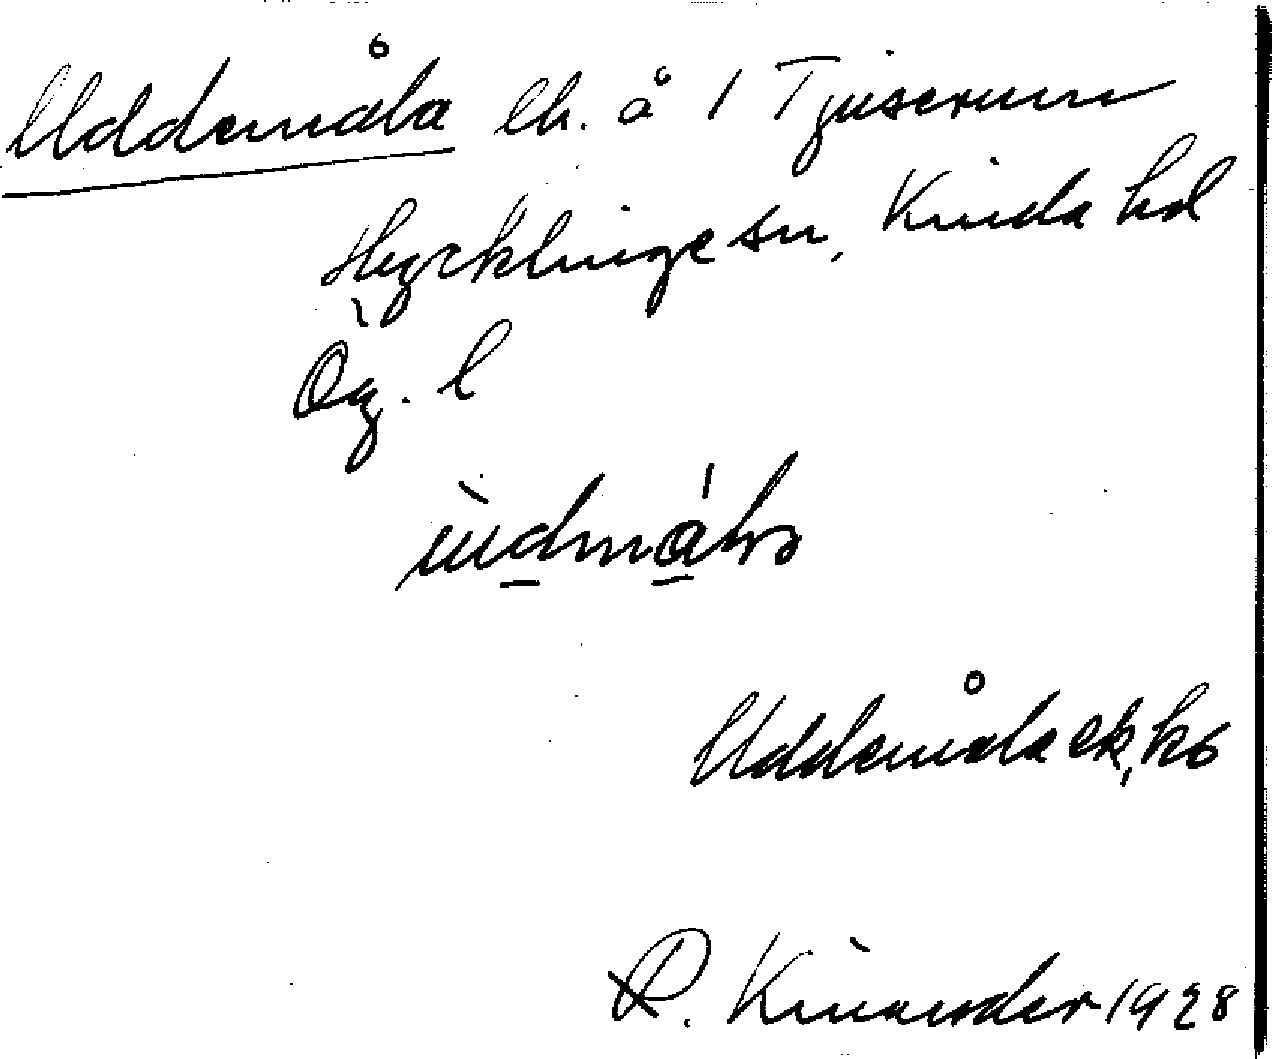 Uddemåla lh. å 1 Tjuserum
Hycklinge sn, Kinda hd
Ög. l
Uddemåla ek, ko
R. Kinander 1928